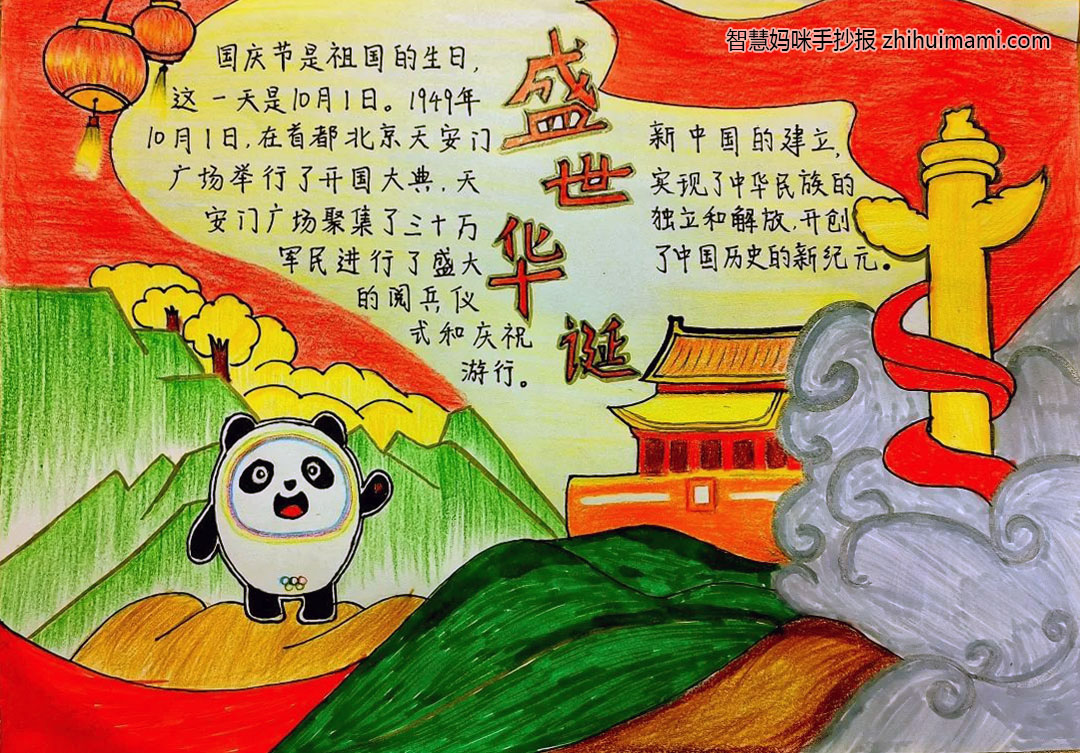 智慧妈咪手抄报 zhihuimami.com
盛世华诞
国庆节是祖国的生日,
这一天是10月1日。1949年
10月1日,在首都北京天安门
广场举行了开国大典,天
安门广场聚集了三十万
军民进行了盛大
的阅兵仪
式和庆祝
游行。
新中国的建立,
实现了中华民族的
独立和解放,开创
了中国历史的新纪元。